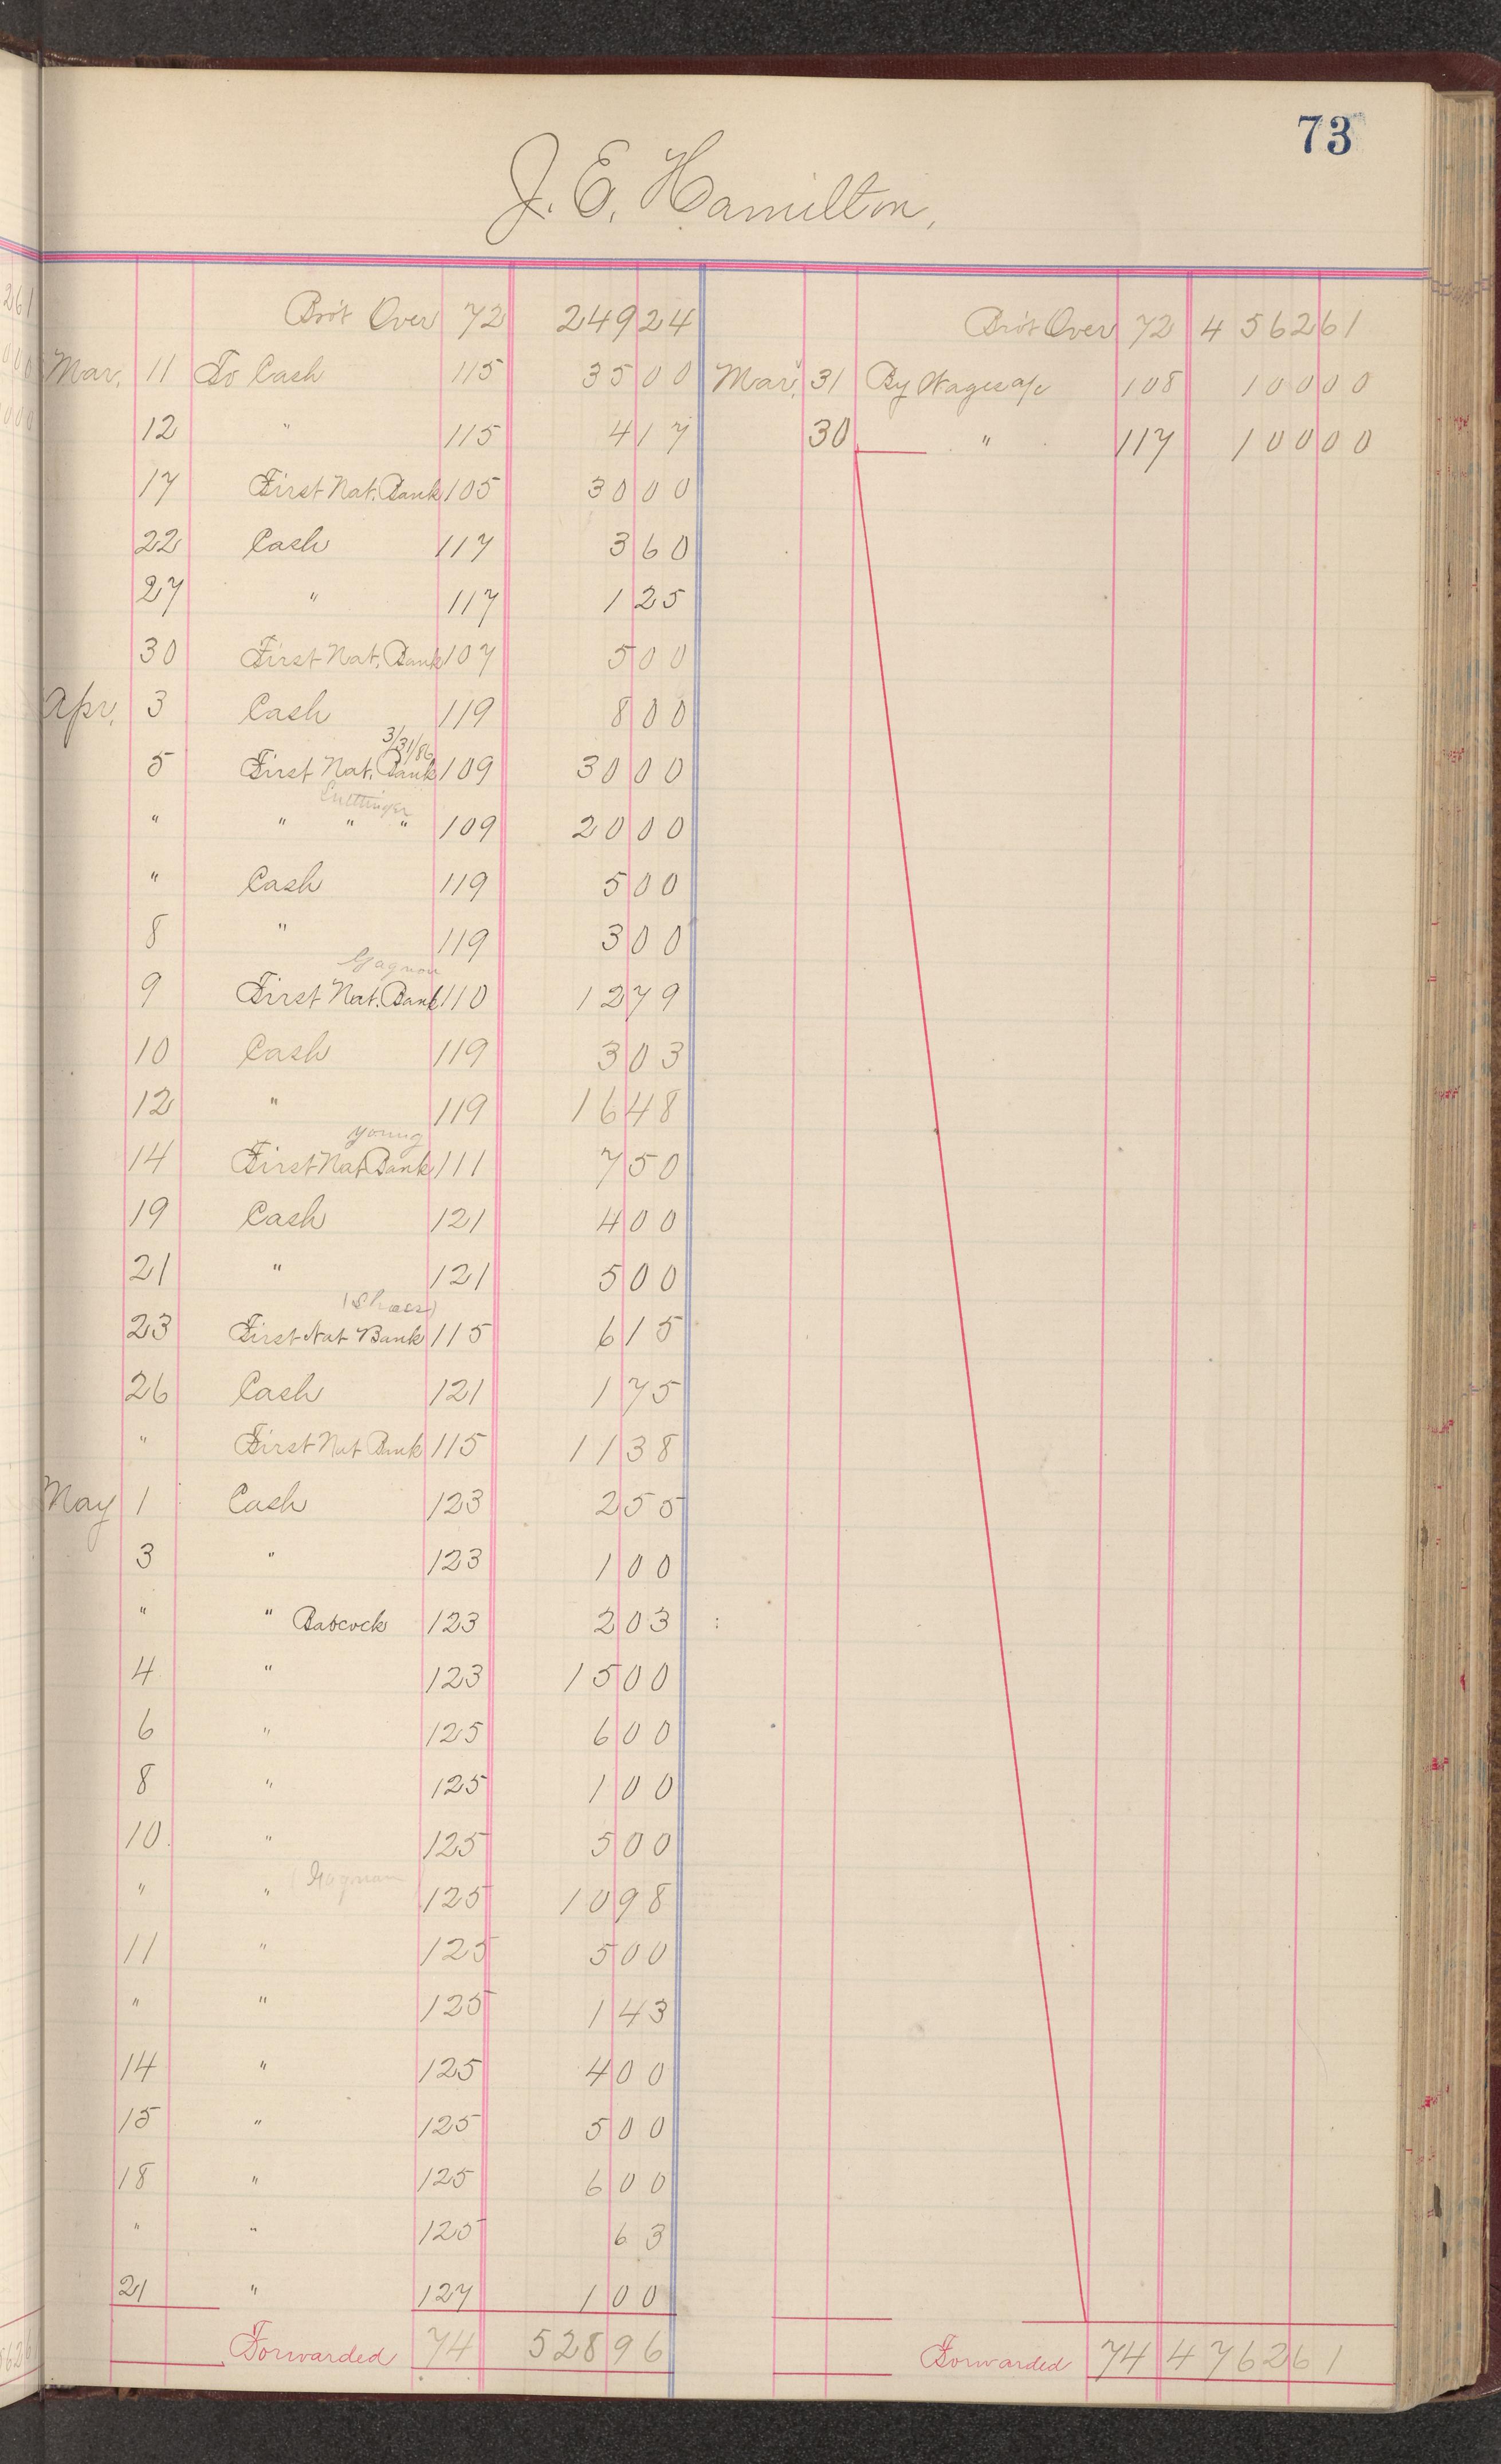 73
J. E. Hamilton,
Bro't Over 72 249 24
Mar. 11 To Cash 115 35 00
12 " 115 4 17
17 First Nat. Bank 105 30 00
22 Cash 117 3 60
27 " 117 1 25
30 First Nat. Bank 107 5 00
Apr. 3 Cash 119 8 00
3/31/86
5 First Nat. Bank 109 30 00
" " " " 109 20 00
" Cash 119 5 00
8 " 119 3 00
Gagnon
9 First Nat. Bank 110 12 79
10 Cash 119 3 03
12 " 119 16 48
Young
14 First Nat Bank 111 7 50
19 Cash 121 4 00
21 " 121 5 00
23 First Nat Bank 115 6 15
26 Cash 121 1 75
" First Nat Bank 115 11 38
May 1 Cash 123 2 55
3 " 123 1 00
" " Babcock 123 2 03
4 " 123 15 00
6 " 125 6 00
8 " 125 1 00
10 " 125 5 00
(Gagnon
" " 125 10 98
11 " 125 5 00
" " 125 1 43
14 " 125 4 00
15 " 125 5 00
18 " 125 6 00
" " 125 63
21 " 127 1 00
Forwarded 74 528 96
Bro't Over 72 4 562 61
Mar. 31 By Wages a/c 108 100 00
30 " 117 100 00
Forwarded 74 4 762 61